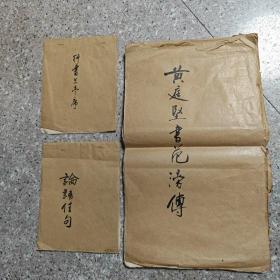 黄庭堅書范滂傳
行書兰亭序
論語佳句